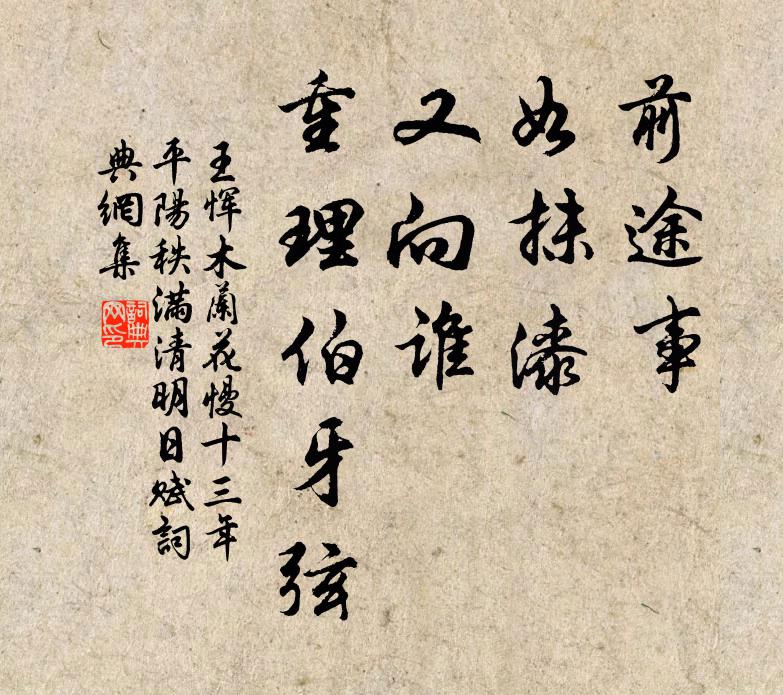 前途事
如抹漆
又向谁
重理伯牙弦
王恽木蘭花慢十三年
平陽秩满清明日赋詞
典網集
詞典网印